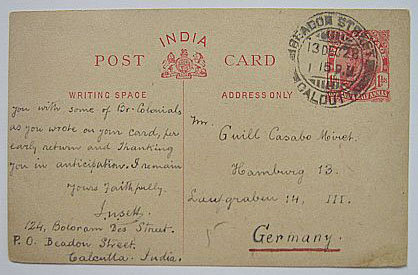 INDIA
POST CARD
WRITING SPACE
ADDRESS ONLY
BEADON STREET
13 DEC 28
1 15 P.M.
CALCUTTA
you with some of Br-Colonials
as you wrote on your card, per
early return and Thanking
you in anticipation. I remain
Yours faithfully.
124, Boloram Des Street.
P. O. Beadon Street.
Calcutta. India.
Mr.
Guill Casabo
Hamburg 13.
Laufgraben 14, III.
Germany.